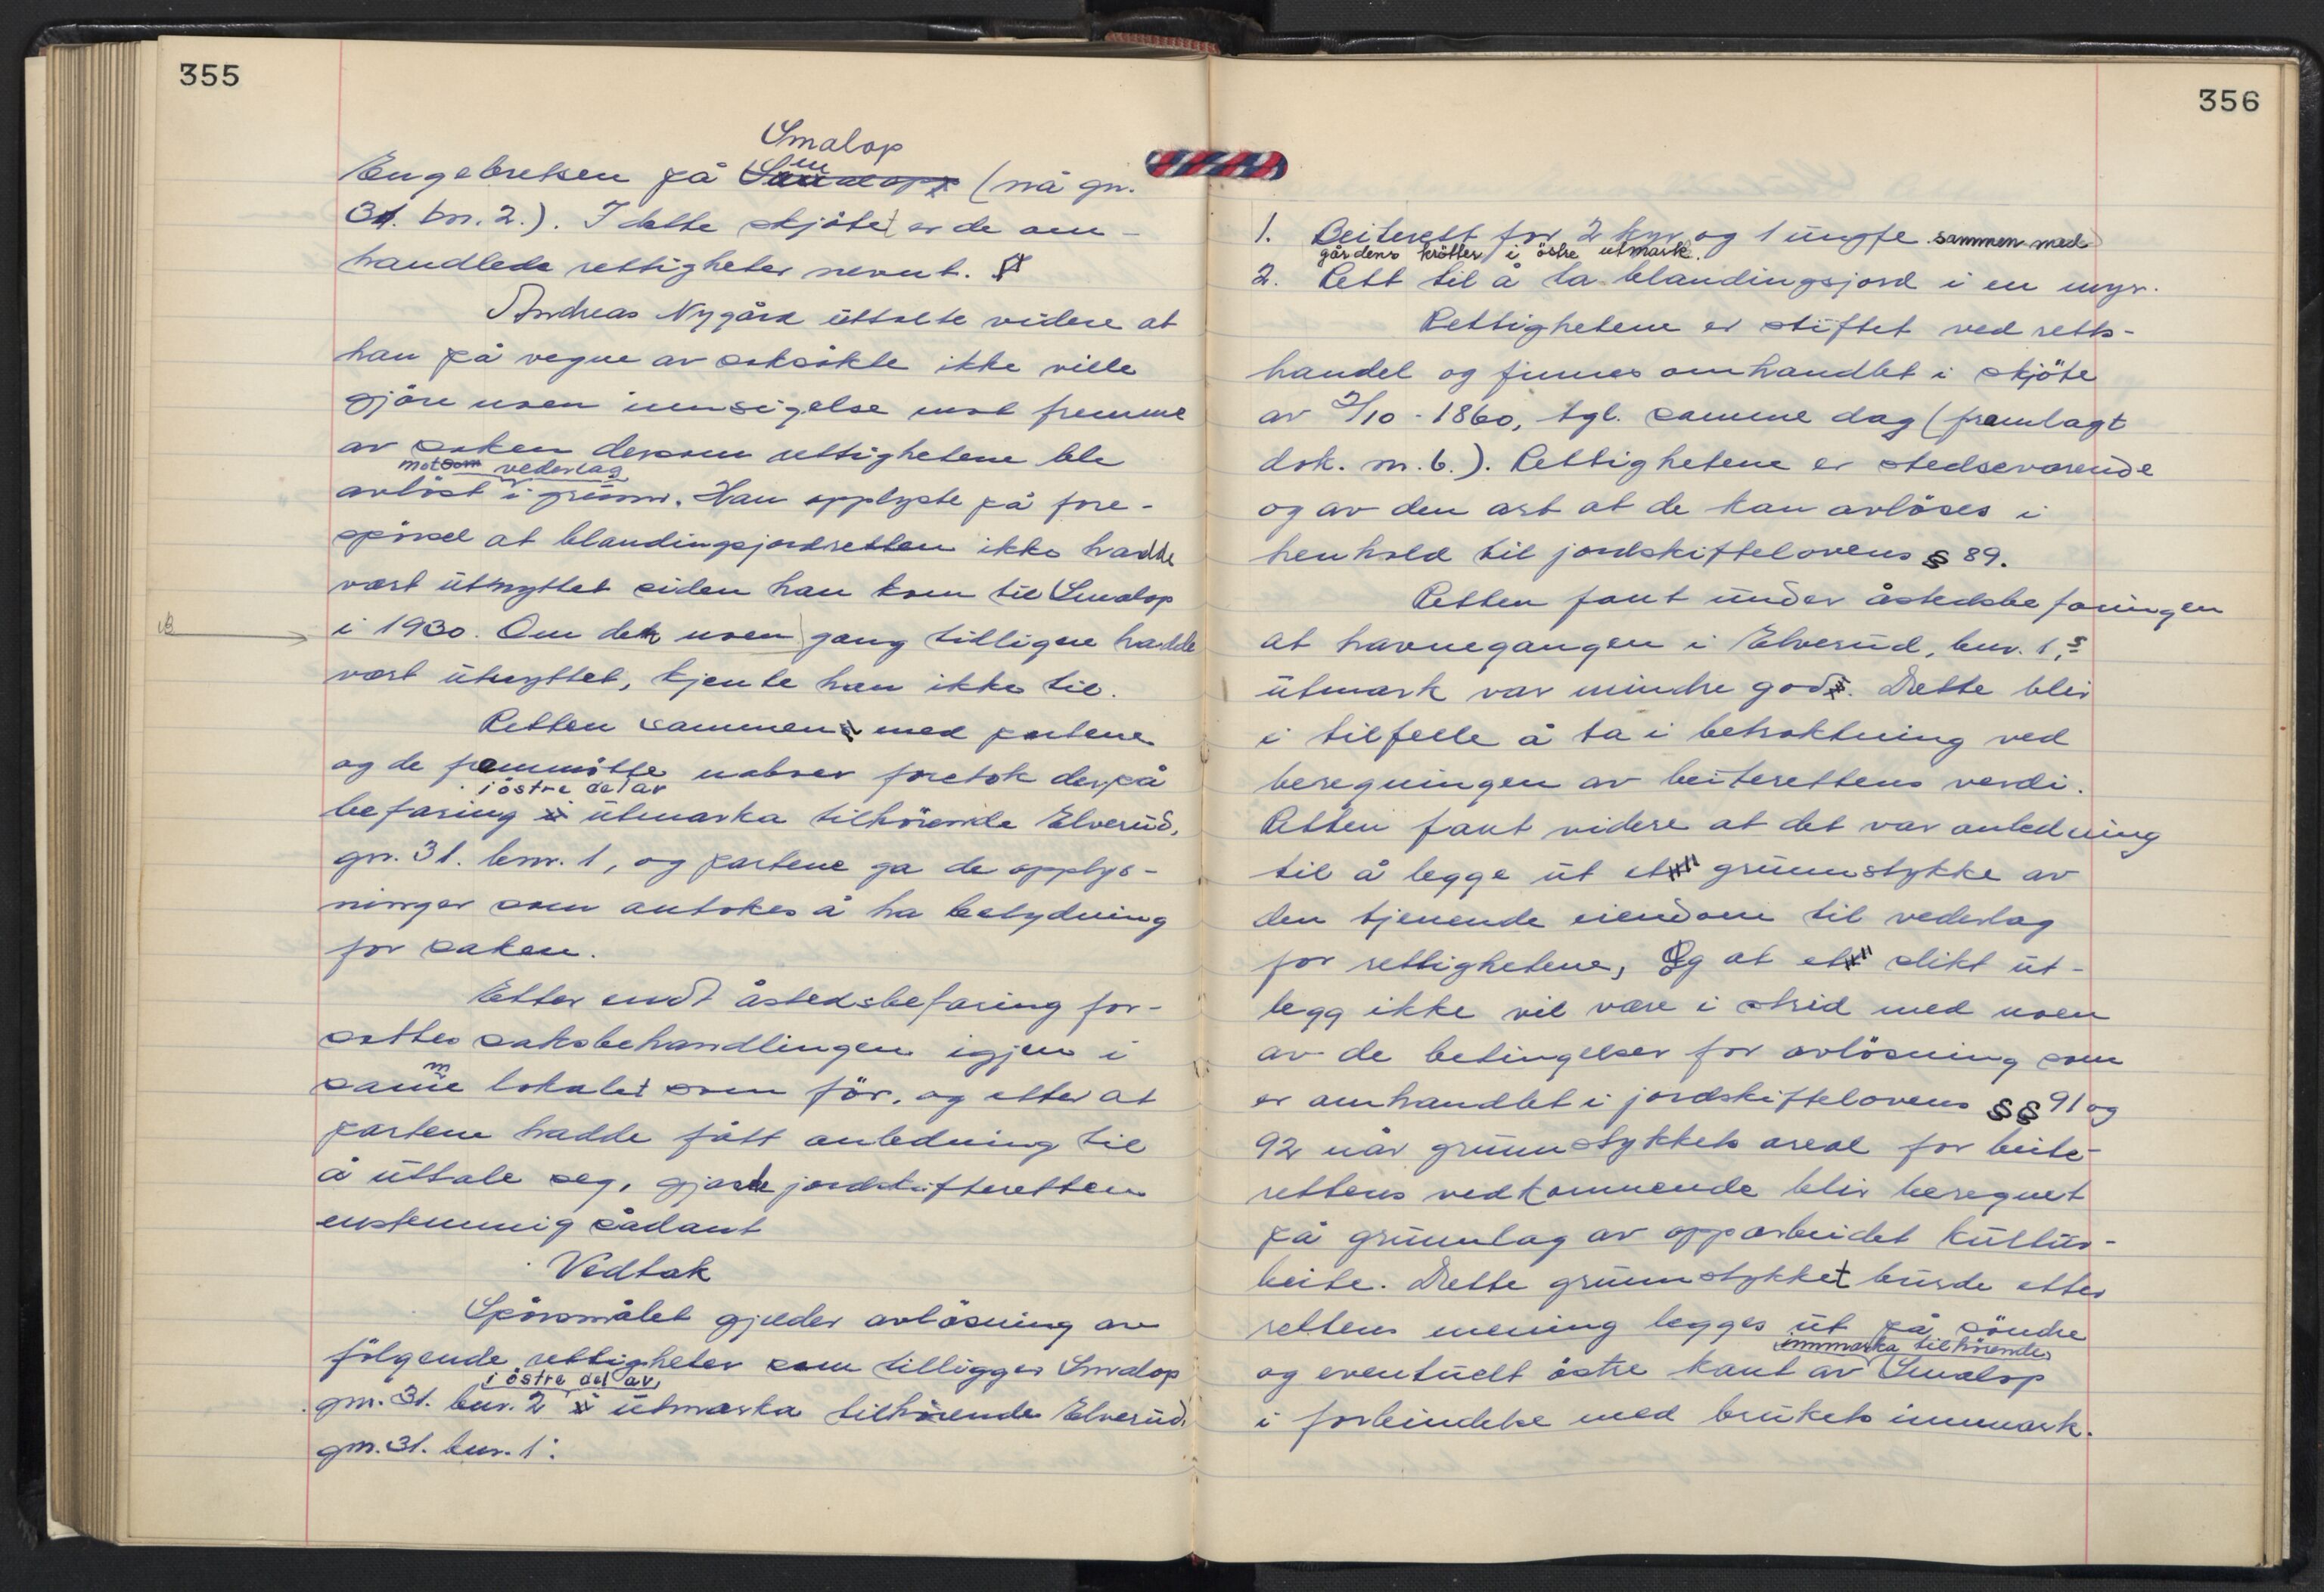 355
Smalop
Engebretsen på Smalop (nå gn.
31. bn. 2.). I dette skjøtet er de om-
handlede rettigheter nevnt.
Andreas Nygård uttalte videre at
han på vegne av saksøkte ikke ville
gjøre noen innsigelse mot fremme
av saken dersom rettighetene ble
mot som vederlag
avløst i grunn. Han opplyste på fore-
spørsel at blandingsjordretten ikke hadde
vært utnyttet siden han kom til Smalop
i 1930. Om den noen gang tidligere hadde
vært utnyttet, kjente han ikke til.
Retten sammen med partene
og de frammøtte naboer foretok derpå
i østre del av
befaring i utmarka tilhørende Elverud,
gnr. 31. bnr. 1, og partene ga de opplys-
ninger som antokes å ha betydning
for saken.
Etter endt åstedsbefaring for-
sattes saksbehandlingen igjen i
samme lokalet som før, og etter at
partene hadde fått anledning til
å uttale seg, gjorde jordskifteretten
enstemmig sådant
Vedtak
Spørsmålet gjelder avløsning av
følgende rettigheter som tilligger Smalop
i østre del av
gnr. 31. bnr. 2 i utmarka tilhørende Elverud,
gnr. 31. bnr. 1:
356
1. Beiterett for 2 kyr og 1 ungfe sammen med
gårdens krøtter i østre utmark.
2. Rett til å ta blandingsjord i en myr.
Rettighetene er stiftet ved retts-
handel og finnes omhandlet i skjøte
av 2/10-1860, tgl. samme dag (framlagt
dok. nr. 6.). Rettighetene er stedsevarende
og av den art at de kan avløses i
henhold til jordskiftelovens § 89.
Retten fant under åstedsbefaringen
at havnegangen i Elverud, bnr. 1,s
utmark var mindre god. Dette blir
i tilfelle å ta i betraktning ved
beregningen av beiterettens verdi.
Retten fant videre at det var anledning
til å legge ut et grunnstykke av
den tjenende eiendom til vederlag
for rettighetene, og at et slikt ut-
legg ikke vil være i strid med noen
av de betingelser for avløsning som
er omhandlet i jordskiftelovens §§ 91 og
92 når grunnstykkets areal for beite-
rettens vedkommende blir beregnet
på grunnlag av opparbeidet kultur-
beite. Dette grunnstykket burde etter
rettens mening legges ut på søndre
innmarka tilhørende
og eventuelt østre kant av Smalop
i forbindelse med brukets innmark.